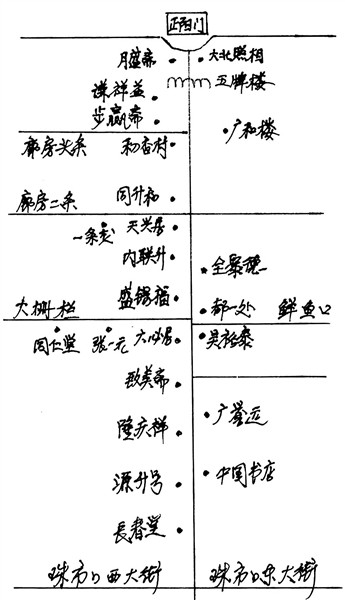 正阳门
月盛斋
大北照相
五牌楼
谦祥益
步瀛斋
广和楼
廊房头条
稻香村
廊房二条
同升和
一条龙
天兴居
内联升
全聚德
盛锡福
大栅栏
都一处
鲜鱼口
同仁堂
张一元
六必居
吴裕泰
致美斋
隆庆祥
广誉远
源升号
中国书店
長春堂
珠市口西大街
珠市口东大街